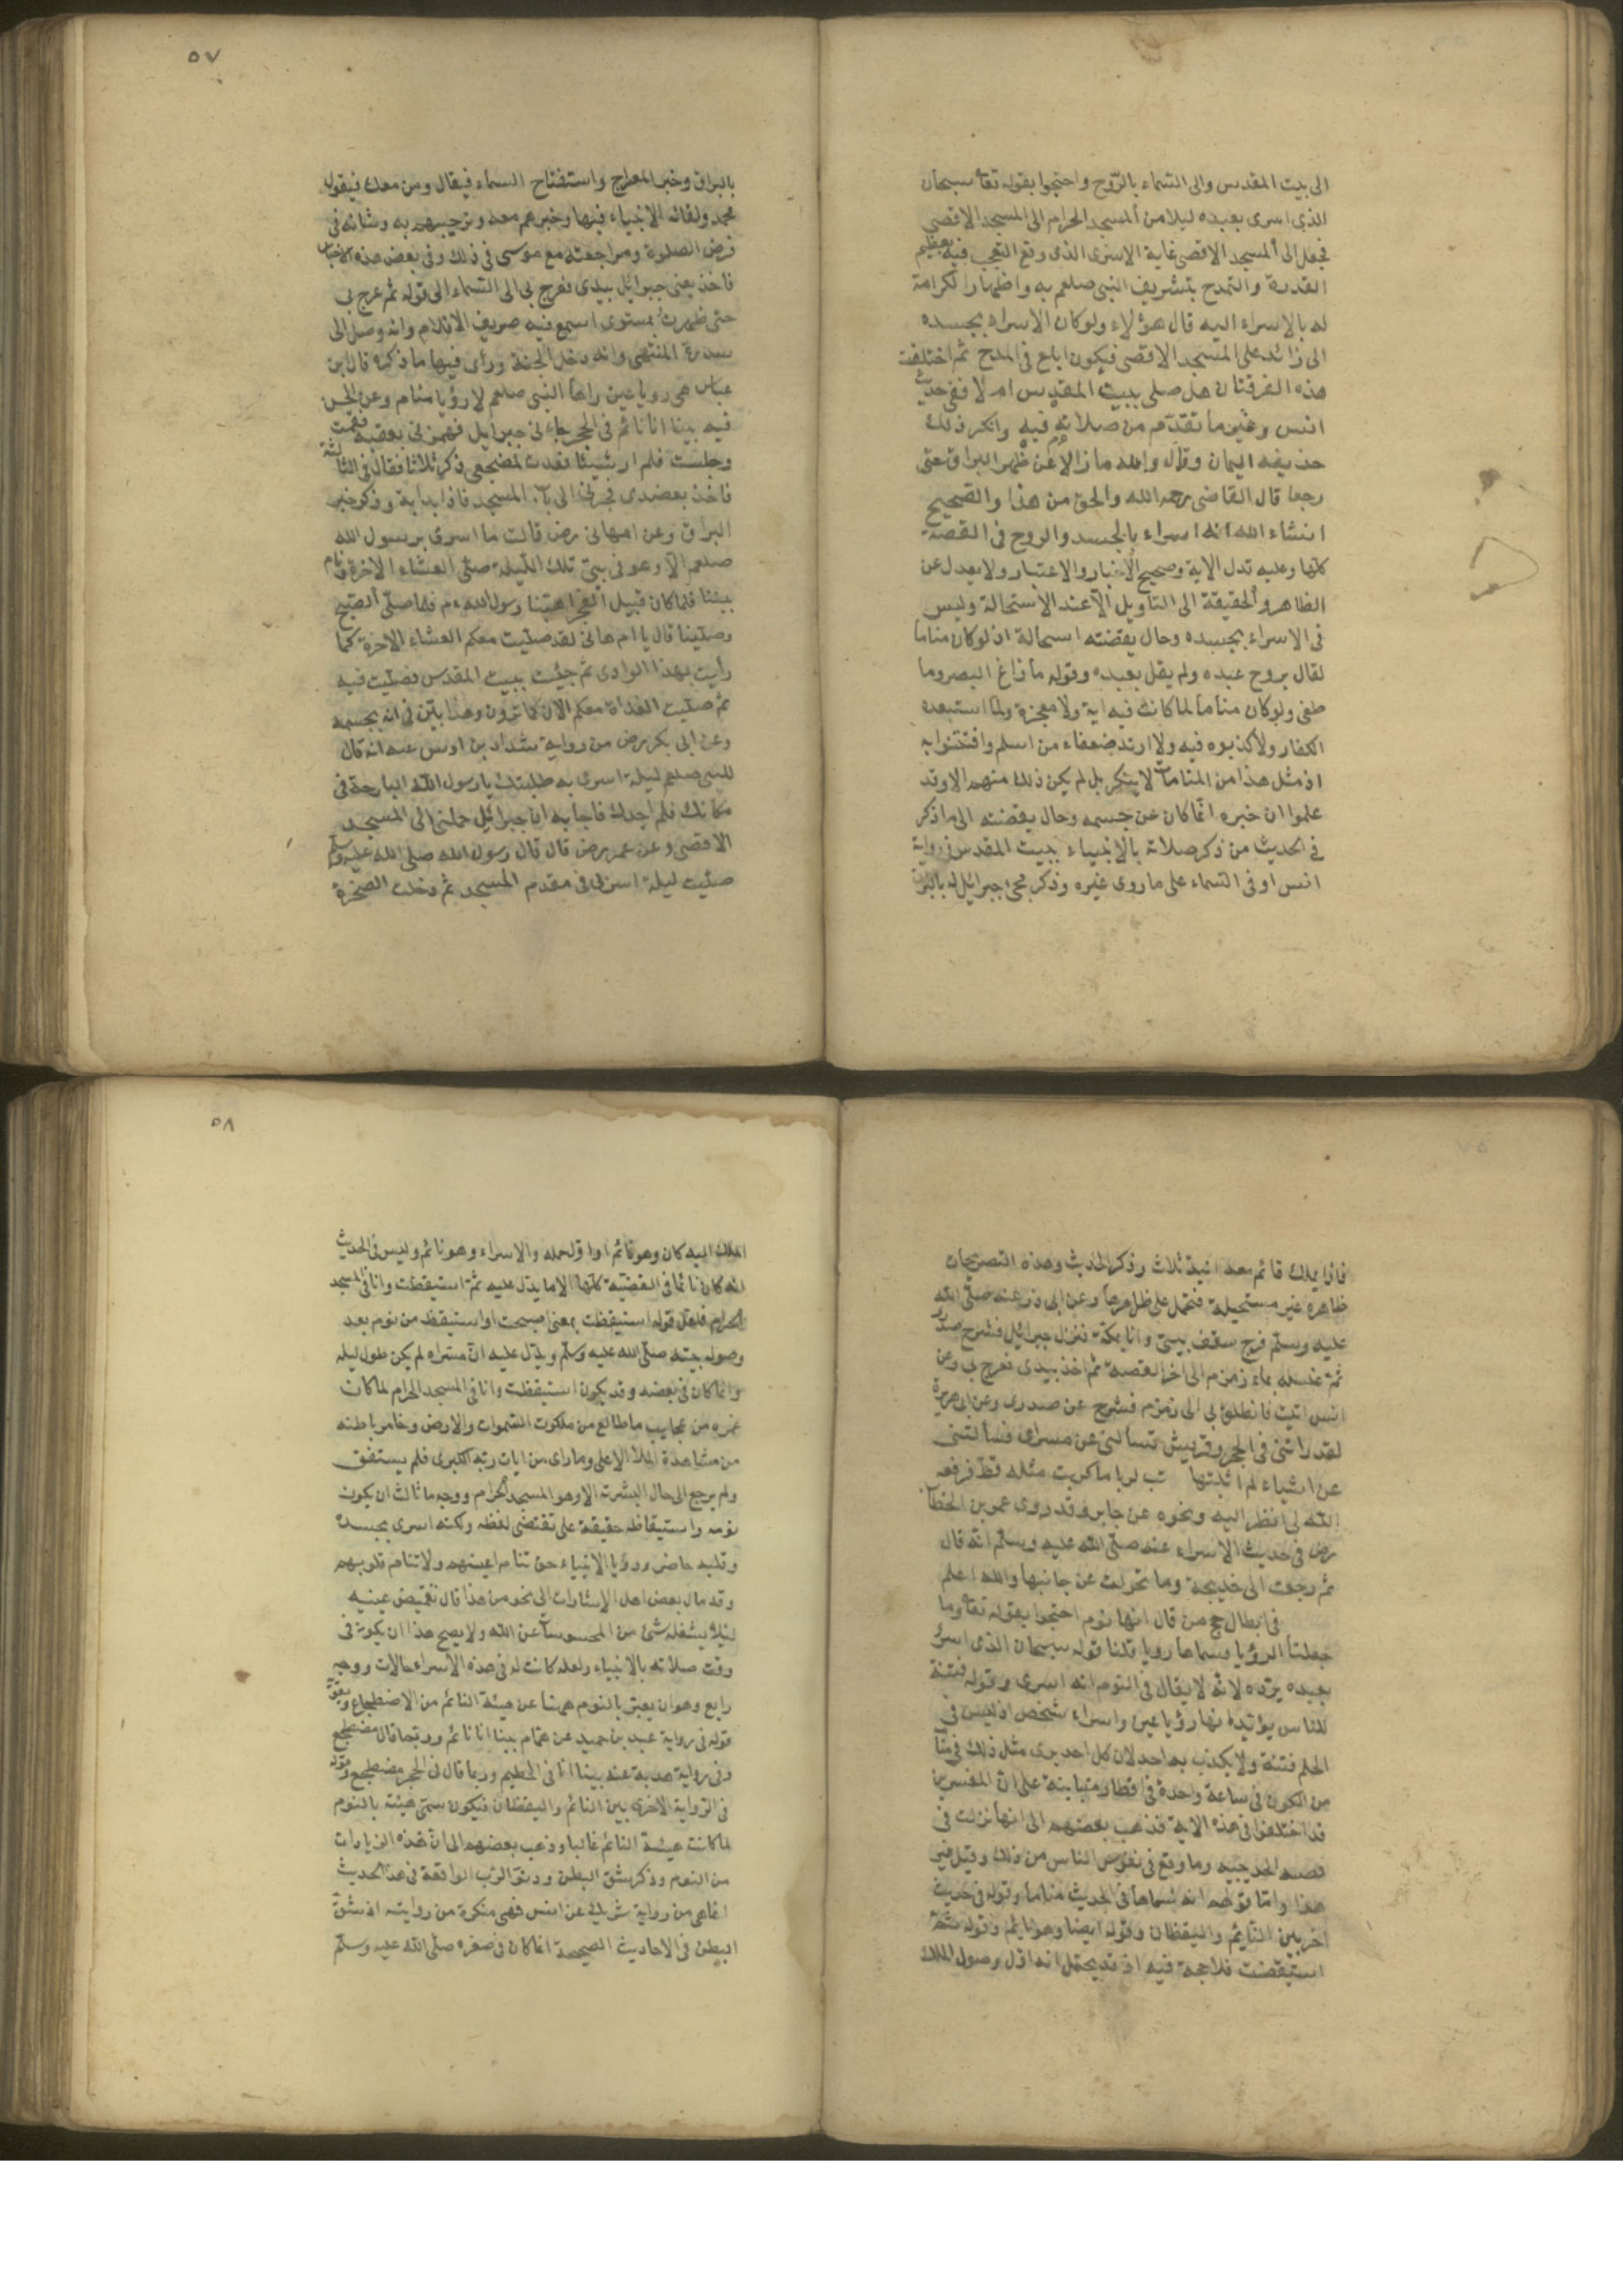 الى بيت المقدس والى السماء بالروح واحتجوا بقوله تعا سبحان
الذي اسرى بعبده ليلا من المسجد الحرام الى المسجد الاقصى
فجعل الى المسجد الاقصى غاية الاسرى الذى وقع التعجب فيه بعظيم
القدرة والتمدح بتشريف النبى صلعم به واظهار الكرامة
له بالاسراء اليه قال هؤلاء ولو كان الاسراء بجسده
الى زائد على المسجد الاقصى فيكون ابلغ فى المدح ثم اختلفت
هذه الفرقتان هل صلى ببيت المقدس ام لا ففى حديث
انس وغيره ما تقدم من صلاته فيه وانكر ذلك
حذيفه اليمان وقال والله ما زالا عن ظهر البراق حتى
رجعا قال القاضى رحمه الله والحق من هذا والصحيح
انشاء الله انه اسراء بالجسد والروح فى القصة
كلها وعليه تدل الاية وصحيح الاخبار والاعتبار ولا يعدل عن
الظاهر والحقيقة الى التاويل الا عند الاستحالة وليس
فى الاسراء بجسده وحال يقضته استحالة اذ لو كان مناما
لقال بروح عبده ولم يقل بعبده وقوله ما زاغ البصر وما
طغى ولو كان مناما لما كانت فيه اية ولا معجزة ولما استبعده
الكفار ولا كذبوه فيه ولا ارتد ضعفاء من اسلم وافتتنوا به
اذ مثل هذا من المنامات لا ينكر بل لم يكن ذلك منهم الا وقد
علموا ان خبره انما كان عن جسمه وحال يقضته الى ما ذكر
فى الحديث من ذكر صلاته بالانبياء ببيت المقدس فى رواية
انس او فى السماء على ما روى غيره وذكر مجئ جبرائيل له بالبراق
٥٧
بالبراق وخبر المعراج واستفتاح السماء فيقال ومن معك فيقول
محمد ولقائه الانبياء فيها وخبرهم معه وترحيبهم به وشانه فى
فرض الصلوة ومراجعته مع موسى فى ذلك وفى بعض هذه الاخبار
فاخذ يعنى جبرائيل بيدى فعرج بى الى السماء الى قوله ثم عرج بى
حتى ظهرت بمستوى اسمع فيه صريف الاقلام وانه وصل الى
سدرة المنتهى وانه دخل الجنة ورأى فيها ما ذكره قال ابن
عباس هى رويا عين راها النبى صلعم لا رؤيا منام وعن الحسن
فيه بينا انا نائم فى الحجر جاءنى جبرايل فهمزنى بعقبه فقمت
وجلست فلم ار شيئا فعدت لمضجعى ذكر ثلاثا فقال فى الثالثة
فاخذ بعضدى فجرنى الى باب المسجد فاذا بدابة وذكر خبر
البراق وعن ام هانى رض قالت ما اسرى برسول الله
صلعم الا وهو فى بيتى تلك الليلة صلى العشاء الاخرة ونام
بيننا فلما كان قبيل الفجر اهبنا رسول الله م فلما صلى الصبح
وصلينا قال يا ام هانى لقد صليت معكم العشاء الاخرة كما
رأيت بهذا الوادى ثم جئت ببيت المقدس فصليت فيه
ثم صليت الغداة معكم الان كما ترون وهذا بين فى انه بجسمه
وعن ابى بكر رض من رواية شداد بن اوس عنه انه قال
للنبى صلعم ليلة اسرى به طلبتك يا رسول الله البارحة فى
مكانك فلم اجدك فاجابه ان جبرائيل حملنى الى المسجد
الاقصى وعن عمر رض قال قال رسول الله صلى الله عليه وسلم
صليت ليلة اسرى بى فى مقدم المسجد ثم دخلت الصخرة
فاذا بملك قائم معه انية ثلاث وذكر الحديث وهذه التصريحات
ظاهره غير مستحيلة فتحمل على ظاهرها وعن ابى ذر عنه صلى الله
عليه وسلم فرج سقف بيتى وانا بمكة فنزل جبرائيل فشرح صدر
ثم غسله بماء زمزم الى اخر القصة ثم اخذ بيدى فعرج بى وعن
انس اتيت فانطلق بى الى زمزم فشرح عن صدرى وعن ابى هريرة
لقد راتنى فى الحجر وقريش تسألنى عن مسراى فسألتنى
عن اشياء لم اثبتها فكربت كربا ما كربت مثله قط فرفعه
الله لى انظر اليه ونحوه عن جابر وقد روى عمر بن الخطاب
رض فى حديث الاسراء عنه صلى الله عليه وسلم انه قال
ثم رجعت الى خديجة وما تحولت عن جانبها والله اعلم
فى ابطال حجج من قال انها نوم احتجوا بقوله تعا وما
جعلنا الرؤيا فسماها رويا قلنا قوله سبحان الذى اسرى
بعبده يرده لانه لا يقال فى النوم انه اسرى وقوله فتنة
للناس يؤيد انها رؤيا عين واسراء شخص اذ ليس فى
الحلم فتنة ولا يكذب به احد لان كل احد يرى مثل ذلك فى منامه
من الكون فى ساعة واحدة فى اقطار متباينة على ان المفسرين
قد اختلفوا فى هذه الاية فذهب بعضهم الى انها نزلت فى
قصة الحديبيه وما وقع فى نفوس الناس من ذلك وقيل غير
هذا واما قولهم انه سماها فى الحديث مناما وقوله فى حديث
اخر بين النايم واليقظان وقوله ايضا وهو نايم وقوله ثم
استيقضت فلا حجة فيه اذ قد يحتمل انه اول وصول الملك
٥٨
الملك اليه كان وهو نائم او اول حمله والاسراء وهو نائم وليس فى الحديث
انه كان نائما فى القضية كلها الا ما يدل عليه ثم استيقظت وانا فى المسجد
الحرام فلعل قوله استيقظت بمعنى اصبحت او استيقظ من نوم بعد
وصوله بيته صلى الله عليه وسلم ويدل عليه ان مسراه لم يكن طول ليله
وانما كان فى بعضه وقد يكون استيقظت وانا فى المسجد الحرام لما كان
غمره من عجايب ما طالع من ملكوت السموات والارض وخامر باطنه
من مشاهدة الملأ الاعلى وما راى من ايات ربه الكبرى فلم يستفق
ولم يرجع الى حال البشرية الا وهو المسجد الحرام ووجه ثالث ان يكون
نومه واستيقاظه حقيقة على مقتضى لفظه ولكنه اسرى بجسده
وقلبه حاضر ورؤيا الانبياء حق تنام اعينهم ولا تنام قلوبهم
وقد مال بعض اهل الاشارات الى نحو من هذا قال تغميض عينيه
ليلا يشغله شئ من المحسوسات عن الله ولا يصح هذا ان يكون فى
وقت صلاته بالانبياء ولعله كانت له فى هذه الاسراء حالات ووجه
رابع وهو ان يعبر بالنوم ههنا عن هيئة النائم من الاضطجاع ويقويه
قوله فى رواية عبد بن حميد عن همام بينا انا نائم وربما قال مضطجع
وفى رواية هدبة عنه بينا انا فى الحطيم وربما قال فى الحجر مضطجع وقوله
فى الرواية الاخرى بين النائم واليقظان فيكون سمى هيئته بالنوم
لما كانت هيئة النائم غالبا وذهب بعضهم الى ان هذه الزيادات
من النوم وذكر شق البطن ودنو الرب الواقعة فى هذا الحديث
انما هى من رواية شريك عن انس فهى منكرة من روايته اذ شق
البطن فى الاحاديث الصحيحة انما كان فى صغره صلى الله عليه وسلم